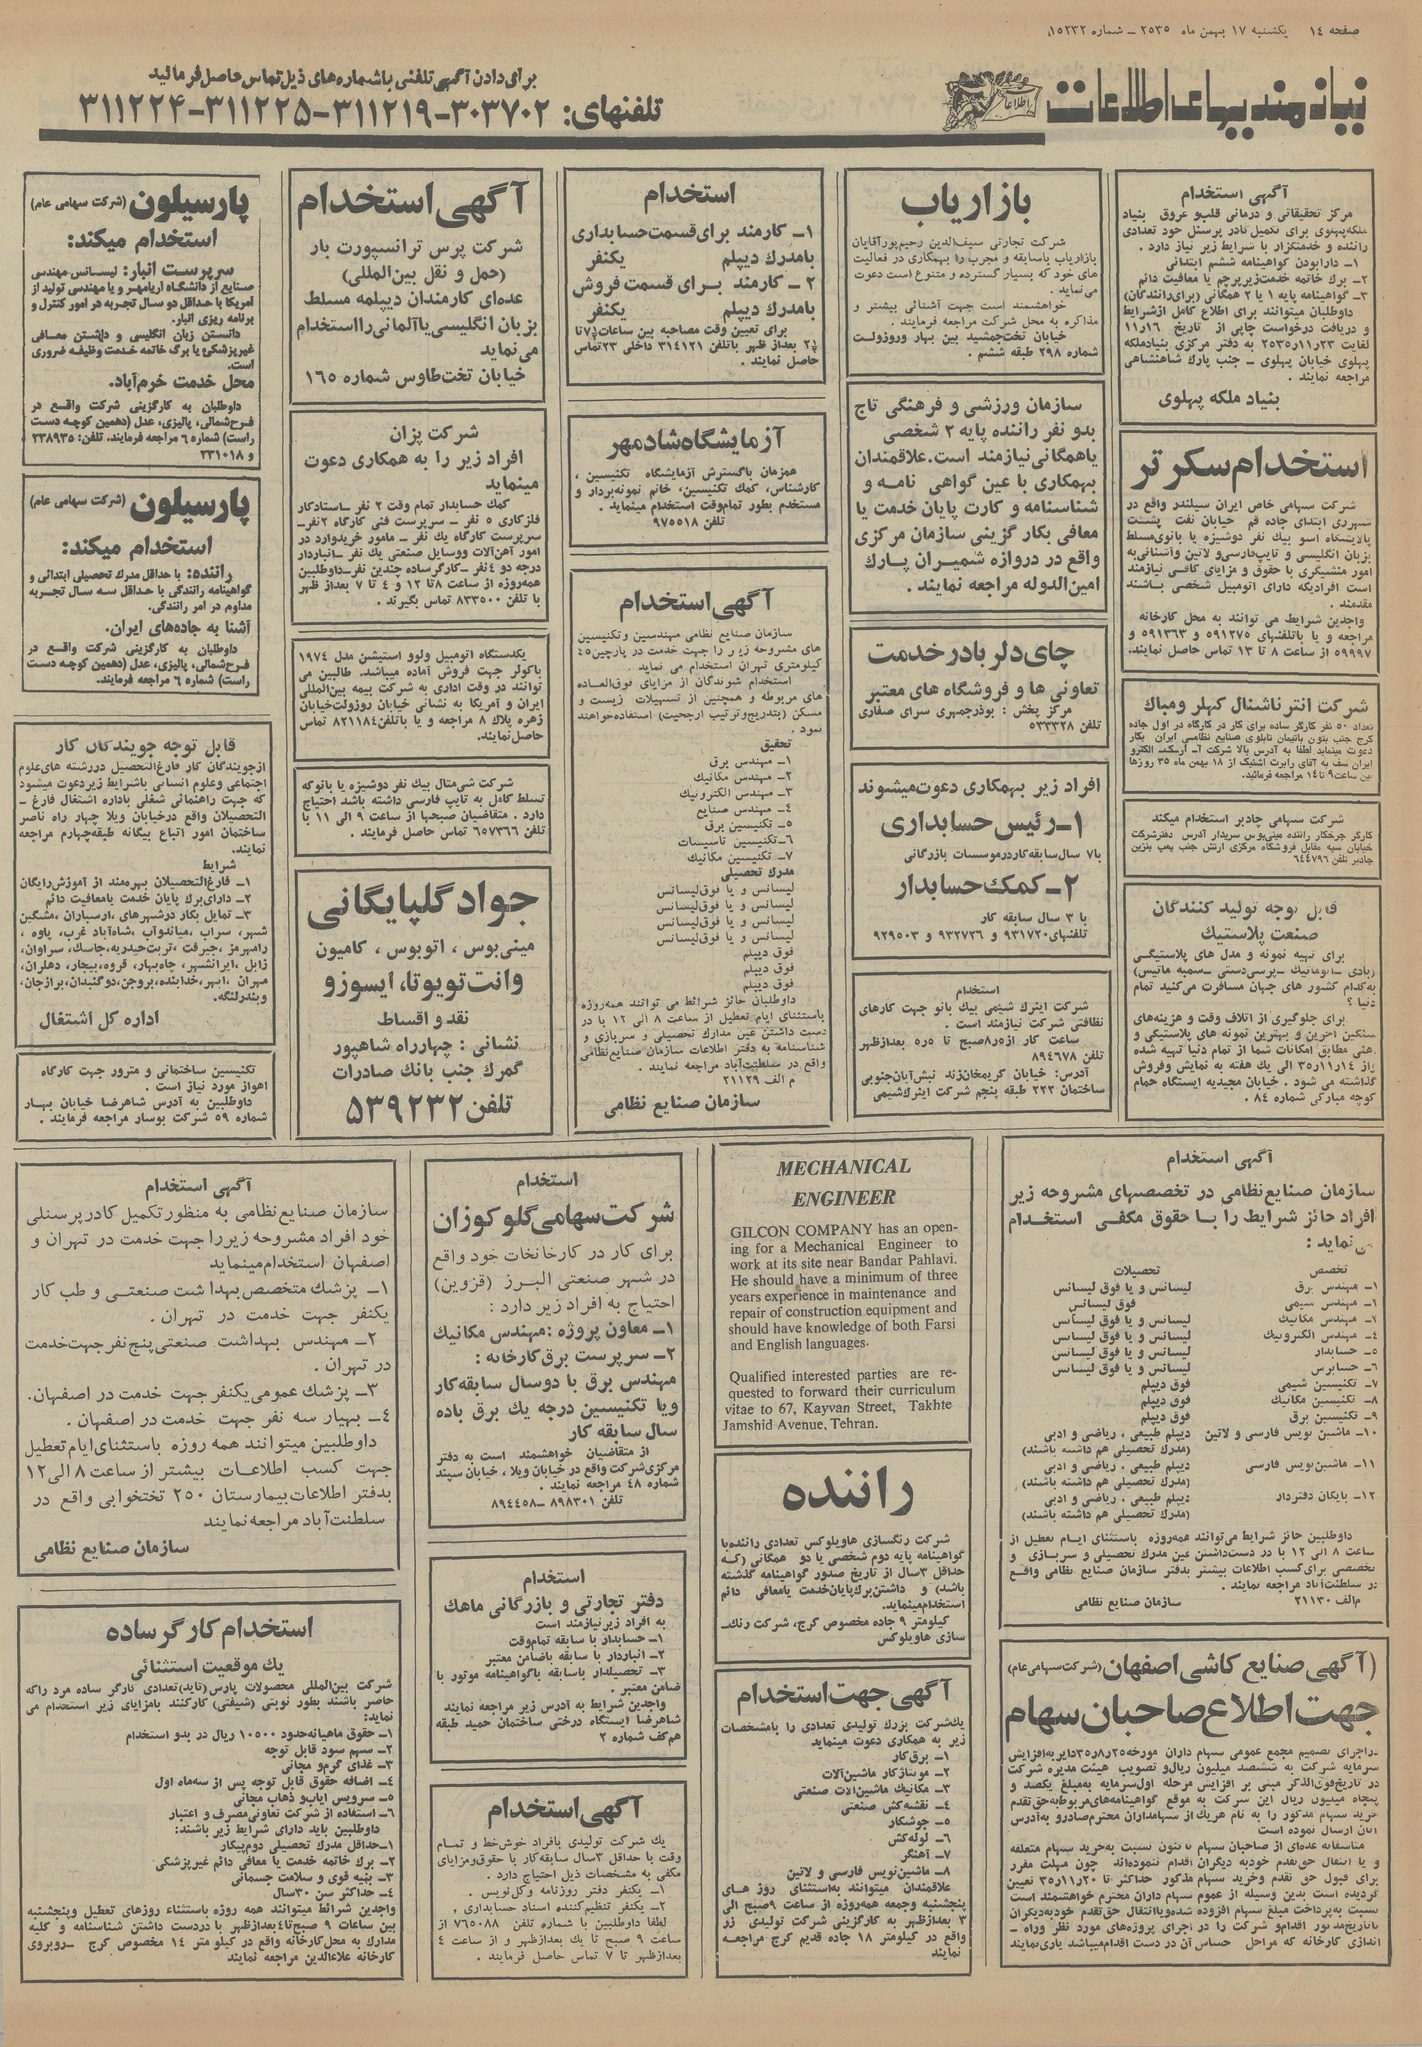 صفحه ١٤ یکشنبه ١٧ بهمن ماه ٢٥٣٥ ـ شماره ١٥٢٣٢
نیازمندیهای اطلاعات
برای دادن آگهی تلفنی با شماره‌های ذیل تماس حاصل فرمائید
تلفنهای: ۳۰۳۷۰۲-۳۱۱۲۱۹-۳۱۱۲۲۵-۳۱۱۲۲۴
آگهی استخدام
مرکز تحقیقاتی و درمانی قلب و عروق بنیاد
ملکه پهلوی برای تکمیل کادر پرسنل خود تعدادی
راننده و خدمتگزار با شرایط زیر نیاز دارد .
١ـ دارا بودن گواهینامه ششم ابتدائی
٢ـ برگ خاتمه خدمت زیر پرچم یا معافیت دائم
٣ـ گواهینامه پایه ١ یا ٢ همگانی (برای رانندگان)
داوطلبان میتوانند برای اطلاع کامل از شرایط
و دریافت درخواست چاپی از تاریخ ١٦ر١١
لغایت ٢٣ر١١ر٢٥٣٥ به دفتر مرکزی بنیاد ملکه
پهلوی خیابان پهلوی ـ جنب پارک شاهنشاهی
مراجعه نمایند .
بنیاد ملکه پهلوی
استخدام سکرتر
شرکت سهامی خاص ایران سیلندر واقع در
شهرری ابتدای جاده قم خیابان نفت پشت
پالایشگاه اسو بیک نفر دوشیزه یا بانوی مسلط
بزبان انگلیسی و تایپ فارسی و لاتین و آشنائی به
امور منشیگری با حقوق و مزایای کافی نیازمند
است افرادیکه دارای اتومبیل شخصی باشند
مقدمند .
واجدین شرایط می توانند به محل کارخانه
مراجعه و یا با تلفنهای ٥٩١٢٧٥ و ٥٩١٣٦٣ و
٥٩٩٩٧ از ساعت ٨ تا ١٣ تماس حاصل نمایند.
شرکت انترناشنال کهلر و مباک
تعداد ٥٠ نفر کارگر ساده برای کار در کارگاه در اول جاده
کرج جنب بتون پاتیمان تابلوی صنایع نظامی ایران بکار
دعوت مینماید لطفا به آدرس بالا شرکت آـ ارـ سک الکترو
ایران سف به آقای رابرت اشنیک از ١٨ بهمن ماه ٣٥ روزها
بین ساعت ٩ تا ١٤ مراجعه فرمائید.
شرکت سهامی چادبر استخدام میکند
کارگر چرخکار راننده مینی‌بوس سریدار آدرس دفتر شرکت
خیابان سپه مقابل فروشگاه مرکزی ارتش جنب پمپ بنزین
چادبر تلفن ٦٤٤٧٩٦
قابل توجه تولید کنندگان
صنعت پلاستیک
برای تهیه نمونه و مدل های پلاستیکی
(بادی ـ اتوماتیک ـ پرسی دستی ـ سمبه ماتیس)
به‌کدام کشور های جهان مسافرت می کنید تمام
دنیا ؟
برای جلوگیری از اتلاف وقت و هزینه‌های
سنگین آخرین و بهترین نمونه های پلاستیکی و
فنی مطابق امکانات شما از تمام دنیا تهیه شده
و از ١٤ر١١ر٣٥ الی یک هفته به نمایش و فروش
گذاشته می شود . خیابان مجیدیه ایستگاه حمام
کوچه مبارکی شماره ٨٤ .
بازاریاب
شرکت تجارتی سیف‌الدین رحیم‌پور آقایان
بازاریاب باسابقه و مجرب را بهمکاری در فعالیت
های خود که بسیار گسترده و متنوع است دعوت
می‌نماید .
خواهشمند است جهت آشنائی بیشتر و
مذاکره به محل شرکت مراجعه فرمایند .
خیابان تخت‌جمشید بین بهار و روزولت
شماره ٢٩٨ طبقه ششم .
سازمان ورزشی و فرهنگی تاج
بدو نفر راننده پایه ٢ شخصی
یا همگانی نیازمند است. علاقمندان
بهمکاری با عین گواهی نامه و
شناسنامه و کارت پایان خدمت یا
معافی بکار گزینی سازمان مرکزی
واقع در دروازه شمیران پارک
امین‌الدوله مراجعه نمایند .
چای دلربا در خدمت
تعاونی ها و فروشگاه های معتبر
مرکز پخش : بوذرجمهری سرای صفاری
تلفن ٥٣٣٣٢٨
افراد زیر بهمکاری دعوت میشوند
١ـ رئیس حسابداری
با ٧ سال سابقه کار در موسسات بازرگانی
٢ـ کمک حسابدار
با ٣ سال سابقه کار
تلفنهای ٩٣١٧٢٠ و ٩٣٢٧٢٦ و ٩٢٩٥٠٣
استخدام
شرکت اینرک شیمی بیک بانو جهت کارهای
نظافتی شرکت نیازمند است .
ساعت کار از ٨ر٥ صبح تا ٥ر٥ بعدازظهر
تلفن ٨٩٤٦٧٨
آدرس: خیابان کریمخان زند نبش آبان جنوبی
ساختمان ٢٢٣ طبقه پنجم شرکت اینرک شیمی
استخدام
١ـ کارمند برای قسمت حسابداری
بامدرک دیپلم یکنفر
٢ ـ کارمند برای قسمت فروش
بامدرک دیپلم یکنفر
برای تعیین وقت مصاحبه بین ساعات ٧½ تا
٢½ بعداز ظهر باتلفن ٣١٤١٢١ داخلی ٢٣ تماس
حاصل نمایند .
آزمایشگاه شادمهر
همزمان باگسترش آزمایشگاه تکنیسین ،
کارشناس، کمک تکنیسین، خانم نمونه بردار و
مستخدم بطور تمام وقت استخدام مینماید .
تلفن ٩٧٥٥١٨
آگهی استخدام
سازمان صنایع نظامی مهندسین و تکنیسین
های مشروحه زیر را جهت خدمت در پارچین ٤٥
کیلومتری تهران استخدام می نماید .
استخدام شوندگان از مزایای فوق‌العاده
های مربوطه و همچنین از تسهیلات زیست و
مسکن (بتدریج و ترتیب ارجحیت) استفاده خواهند
نمود .
تحقیق
١ـ مهندس برق
٢ـ مهندس مکانیک
٣ـ مهندس الکترونیک
٤ـ مهندس صنایع
٥ـ تکنیسین برق
٦ـ تکنیسین تاسیسات
٧ـ تکنیسین مکانیک
مدرک تحصیلی
لیسانس و یا فوق لیسانس
لیسانس و یا فوق لیسانس
لیسانس و یا فوق لیسانس
لیسانس و یا فوق لیسانس
فوق دیپلم
فوق دیپلم
فوق دیپلم
داوطلبان حائز شرائط می توانند همه‌روزه
باستثنای ایام تعطیل از ساعت ٨ الی ١٢ با در
دست داشتن عین مدارک تحصیلی و سربازی و
شناسنامه به دفتر اطلاعات سازمان صنایع نظامی
واقع در سلطنت‌آباد مراجعه نمایند .
م الف ٢١١٢٩
سازمان صنایع نظامی
آگهی استخدام
شرکت پرس ترانسپورت بار
(حمل و نقل بین‌المللی)
عده‌ای کارمندان دیپلمه مسلط
بزبان انگلیسی یا آلمانی را استخدام
می‌نماید
خیابان تخت‌طاوس شماره ١٦٥
شرکت پزان
افراد زیر را به همکاری دعوت
مینماید
کمک حسابدار تمام وقت ٢ نفر ـ استادکار
فلزکاری ٥ نفر ـ سرپرست فنی کارگاه ٢ نفر ـ
سرپرست کارگاه یک نفر ـ مامور خرید وارد در
امور آهن‌آلات و وسایل صنعتی یک نفر ـ انباردار
درجه دو ٤ نفر ـ کارگر ساده چندین نفر ـ داوطلبین
همه‌روزه از ساعت ٨ تا ١٢ و ٤ تا ٧ بعداز ظهر
با تلفن ٨٣٣٥٠٠ تماس بگیرند .
یکدستگاه اتومبیل ولوو استیشن مدل ١٩٧٤
باکولر جهت فروش آماده میباشد. طالبین می
توانند در وقت اداری به شرکت بیمه بین‌المللی
ایران و آمریکا به نشانی خیابان روزولت خیابان
زهره پلاک ٨ مراجعه و یا با تلفن ٨٢١١٨٤ تماس
حاصل نمایند.
شرکت شی‌متال بیک نفر دوشیزه یا بانو که
تسلط کامل به تایپ فارسی داشته باشد احتیاج
دارد . متقاضیان صبحها از ساعت ٩ الی ١١ با
تلفن ٦٥٧٣٦٦ تماس حاصل فرمایند .
جواد گلپایگانی
مینی‌بوس ، اتوبوس ، کامیون
وانت تویوتا، ایسوزو
نقد و اقساط
نشانی : چهارراه شاهپور
گمرک جنب بانک صادرات
تلفن ٥٣٩٢٣٢
پارسیلون (شرکت سهامی عام)
استخدام میکند:
سرپرست انبار: لیسانس مهندسی
صنایع از دانشگاه آریامهر و یا مهندسی تولید از
آمریکا با حداقل دو سال تجربه در امور کنترل و
برنامه ریزی انبار.
دانستن زبان انگلیسی و داشتن معافی
غیرپزشکی یا برگ خاتمه خدمت وظیفه ضروری
است.
محل خدمت خرم‌آباد.
داوطلبان به کارگزینی شرکت واقع در
فرح شمالی، پالیزی، عدل (دهمین کوچه دست
راست) شماره ٦ مراجعه فرمایند. تلفن: ٢٣٨٩٣٥
و ٢٣١٠١٨
پارسیلون (شرکت سهامی عام)
استخدام میکند:
راننده: با حداقل مدرک تحصیلی ابتدائی و
گواهینامه رانندگی با حداقل سه سال تجربه
مداوم در امر رانندگی.
آشنا به جاده‌های ایران.
داوطلبان به کارگزینی شرکت واقع در
فرح شمالی، پالیزی، عدل (دهمین کوچه دست
راست) شماره ٦ مراجعه فرمایند.
قابل توجه جویندگان کار
از جویندگان کار فارغ‌التحصیل در رشته های علوم
اجتماعی و علوم انسانی باشرایط زیر دعوت میشود
که جهت راهنمائی شغلی باداره اشتغال فارغ ـ
التحصیلان واقع در خیابان ویلا چهار راه ناصر
ساختمان امور اتباع بیگانه طبقه چهارم مراجعه
نمایند.
شرایط
١ـ فارغ‌التحصیلان بهره‌مند از آموزش رایگان
٢ـ دارای برگ پایان خدمت یا معافیت دائم
٣ـ تمایل بکار در شهرهای ، ارسباران ، مشگین
شهر، سراب، میاندوآب ، شاه‌آباد غرب، پاوه ،
رامهرمز، جیرفت، تربت حیدریه، جاسک، سراوان،
زابل ، ایرانشهر، چاه‌بهار، قروه، بیجار، دهلران،
مهران ، ابهر، خدابنده، بروجن، دوگنبدان، برازجان،
و بندر لنگه.
اداره کل اشتغال
تکنیسین ساختمانی و مترور جهت کارگاه
اهواز مورد نیاز است .
داوطلبین به آدرس شاهرضا خیابان بهار
شماره ٥٩ شرکت بوسار مراجعه فرمایند .
آگهی استخدام
سازمان صنایع نظامی در تخصصهای مشروحه زیر
افراد حائز شرایط را با حقوق مکفی استخدام
می‌نماید :
تخصص تحصیلات
١ـ مهندس برق لیسانس و یا فوق لیسانس
٢ـ مهندس شیمی فوق لیسانس
٣ـ مهندس مکانیک لیسانس و یا فوق لیسانس
٤ـ مهندس الکترونیک لیسانس و یا فوق لیسانس
٥ـ حسابدار لیسانس و یا فوق لیسانس
٦ـ حسابرس لیسانس و یا فوق لیسانس
٧ـ تکنیسین شیمی فوق دیپلم
٨ـ تکنیسین مکانیک فوق دیپلم
٩ـ تکنیسین برق فوق دیپلم
١٠ـ ماشین نویس فارسی و لاتین دیپلم طبیعی ، ریاضی و ادبی
(مدرک تحصیلی هم داشته باشند)
١١ـ ماشین‌نویس فارسی دیپلم طبیعی ، ریاضی و ادبی
(مدرک تحصیلی هم داشته باشند)
١٢ـ بایگان دفتردار دیپلم طبیعی ، ریاضی و ادبی
(مدرک تحصیلی هم داشته باشند)
داوطلبین حائز شرایط می‌توانند همه‌روزه باستثنای ایام تعطیل از
ساعت ٨ الی ١٢ با در دست داشتن عین مدرک تحصیلی و سربازی و
تخصصی برای کسب اطلاعات بیشتر بدفتر سازمان صنایع نظامی واقع
در سلطنت‌آباد مراجعه نمایند .
م‌الف ٢١١٣٠ سازمان صنایع نظامی
(آگهی صنایع کاشی اصفهان (شرکت سهامی عام)
جهت اطلاع صاحبان سهام
با اجرای تصمیم مجمع عمومی سهام داران مورخه ٢٥ر٨ر٣٥ دایر به افزایش
سرمایه شرکت به ششصد میلیون ریال و تصویب هیئت مدیره شرکت
در تاریخ فوق‌الذکر مبنی بر افزایش مرحله اول سرمایه به مبلغ یکصد و
پنجاه میلیون ریال این شرکت به موقع گواهینامه‌های مربوط به حق تقدم
خرید سهام مذکور را به نام هریک از سهامداران محترم صادر و به آدرس
آنان ارسال نموده است
متاسفانه عده‌ای از صاحبان سهام تاکنون نسبت به خرید سهام متعلقه
و یا انتقال حق تقدم خود به دیگران اقدام ننموده‌اند چون مهلت مقرر
برای قبول حق تقدم و خرید سهام مذکور حداکثر تا ٢٠ر١١ر٣٥ تعیین
گردیده است بدین وسیله از عموم سهام داران محترم خواهشمند است
نسبت به پرداخت مبلغ سهام افزوده شده و یا انتقال حق تقدم خود به دیگران
تا تاریخ مذکور اقدام و شرکت را در اجرای پروژه‌های مورد نظر و راه ـ
اندازی کارخانه که مراحل حساس آن در دست اقدام میباشد یاری نمایند
MECHANICAL
ENGINEER
GILCON COMPANY has an open-
ing for a Mechanical Engineer to
work at its site near Bandar Pahlavi.
He should have a minimum of three
years experience in maintenance and
repair of construction equipment and
should have knowledge of both Farsi
and English languages.
Qualified interested parties are re-
quested to forward their curriculum
vitae to 67, Kayvan Street, Takhte
Jamshid Avenue, Tehran.
راننده
شرکت رنگسازی هاویلوکس تعدادی راننده با
گواهینامه پایه دوم شخصی یا دو همگانی (که
حداقل ٣ سال از تاریخ صدور گواهینامه گذشته
باشد) و داشتن برگ پایان خدمت یا معافی دائم
استخدام مینماید.
کیلومتر ٩ جاده مخصوص کرج، شرکت رنگ ـ
سازی هاویلوکس
آگهی جهت استخدام
یک شرکت بزرگ تولیدی تعدادی را بامشخصات
زیر به همکاری دعوت مینماید
١ـ برق‌کار
٢ـ مونتاژکار ماشین‌آلات
٣ـ مکانیک ماشین‌آلات صنعتی
٤ـ نقشه‌کش صنعتی
٥ـ جوشکار
٦ـ لوله‌کش
٧ـ آهنگر
٨ـ ماشین‌نویس فارسی و لاتین
علاقمندان میتوانند به‌استثنای روز های
پنجشنبه و جمعه همه‌روزه از ساعت ٩ صبح الی
٣ بعدازظهر به کارگزینی شرکت تولیدی زر
واقع در کیلومتر ١٨ جاده قدیم کرج مراجعه
نمایند
استخدام
شرکت سهامی گلوکوزان
برای کار در کارخانجات خود واقع
در شهر صنعتی البرز (قزوین)
احتیاج به افراد زیر دارد :
١ـ معاون پروژه : مهندس مکانیک
٢ـ سرپرست برق کارخانه :
مهندس برق با دو سال سابقه کار
و یا تکنیسین درجه یک برق با ده
سال سابقه کار
از متقاضیان خواهشمند است به دفتر
مرکزی شرکت واقع در خیابان ویلا ، خیابان سپند
شماره ٤٨ مراجعه نمایند .
تلفن ٨٩٨٣٠١ ـ ٨٩٤٤٥٨
استخدام
دفتر تجارتی و بازرگانی ماهک
به افراد زیر نیازمند است
١ـ حسابدار با سابقه تمام‌وقت
٢ـ انباردار با سابقه باضامن معتبر
٣ـ تحصیلدار باسابقه باگواهینامه موتور با
ضامن معتبر .
واجدین شرایط به آدرس زیر مراجعه نمایند
شاهرضا ایستگاه درختی ساختمان حمید طبقه
همکف شماره ٢
آگهی استخدام
یک شرکت تولیدی بافراد خوش‌خط و تمام
وقت با حداقل ٣ سال سابقه کار با حقوق و مزایای
مکفی به مشخصات ذیل احتیاج دارد .
١ـ یکنفر دفتر روزنامه و کل‌نویس .
٢ـ یکنفر تنظیم‌کننده اسناد حسابداری .
لطفا داوطلبین با شماره تلفن ٧٦٥٠٨٨ از
ساعت ٩ صبح تا یک بعدازظهر و از ساعت ٤
بعدازظهر تا ٧ تماس حاصل فرمایند .
آگهی استخدام
سازمان صنایع نظامی به منظور تکمیل کادر پرسنلی
خود افراد مشروحه زیر را جهت خدمت در تهران و
اصفهان استخدام مینماید
١ـ پزشک متخصص بهداشت صنعتی و طب کار
یکنفر جهت خدمت در تهران .
٢ـ مهندس بهداشت صنعتی پنج نفر جهت خدمت
در تهران .
٣ـ پزشک عمومی یکنفر جهت خدمت در اصفهان.
٤ـ بهیار سه نفر جهت خدمت در اصفهان .
داوطلبین میتوانند همه روزه باستثنای ایام تعطیل
جهت کسب اطلاعات بیشتر از ساعت ٨ الی ١٢
بدفتر اطلاعات بیمارستان ٢٥٠ تختخوابی واقع در
سلطنت‌آباد مراجعه نمایند
سازمان صنایع نظامی
استخدام کارگر ساده
یک موقعیت استثنائی
شرکت بین‌المللی محصولات پارس (تاید) تعدادی کارگر ساده مرد را که
حاضر باشند بطور نوبتی (شیفتی) کار کنند بامزایای زیر استخدام می
نماید:
١ـ حقوق ماهیانه حدود ١٠٥٠٠ ریال در بدو استخدام
٢ـ سهم سود قابل توجه
٣ـ غذای گرم و مجانی
٤ـ اضافه حقوق قابل توجه پس از سه‌ماه اول
٥ـ سرویس ایاب و ذهاب مجانی
٦ـ استفاده از شرکت تعاونی مصرف و اعتبار
داوطلبین باید دارای شرایط زیر باشند:
١ـ حداقل مدرک تحصیلی دوم پیکار
٢ـ برگ خاتمه خدمت یا معافی دائم غیرپزشکی
٣ـ بنیه قوی و سلامت جسمانی
٤ـ حداکثر سن ٣٠ سال
واجدین شرائط میتوانند همه روزه باستثناء روزهای تعطیل و پنجشنبه
بین ساعات ٩ صبح تا ٤ بعدازظهر با در دست داشتن شناسنامه و کلیه
مدارک به محل کارخانه واقع در کیلو متر ١٤ مخصوص کرج ـ روبروی
کارخانه علاءالدین مراجعه نمایند